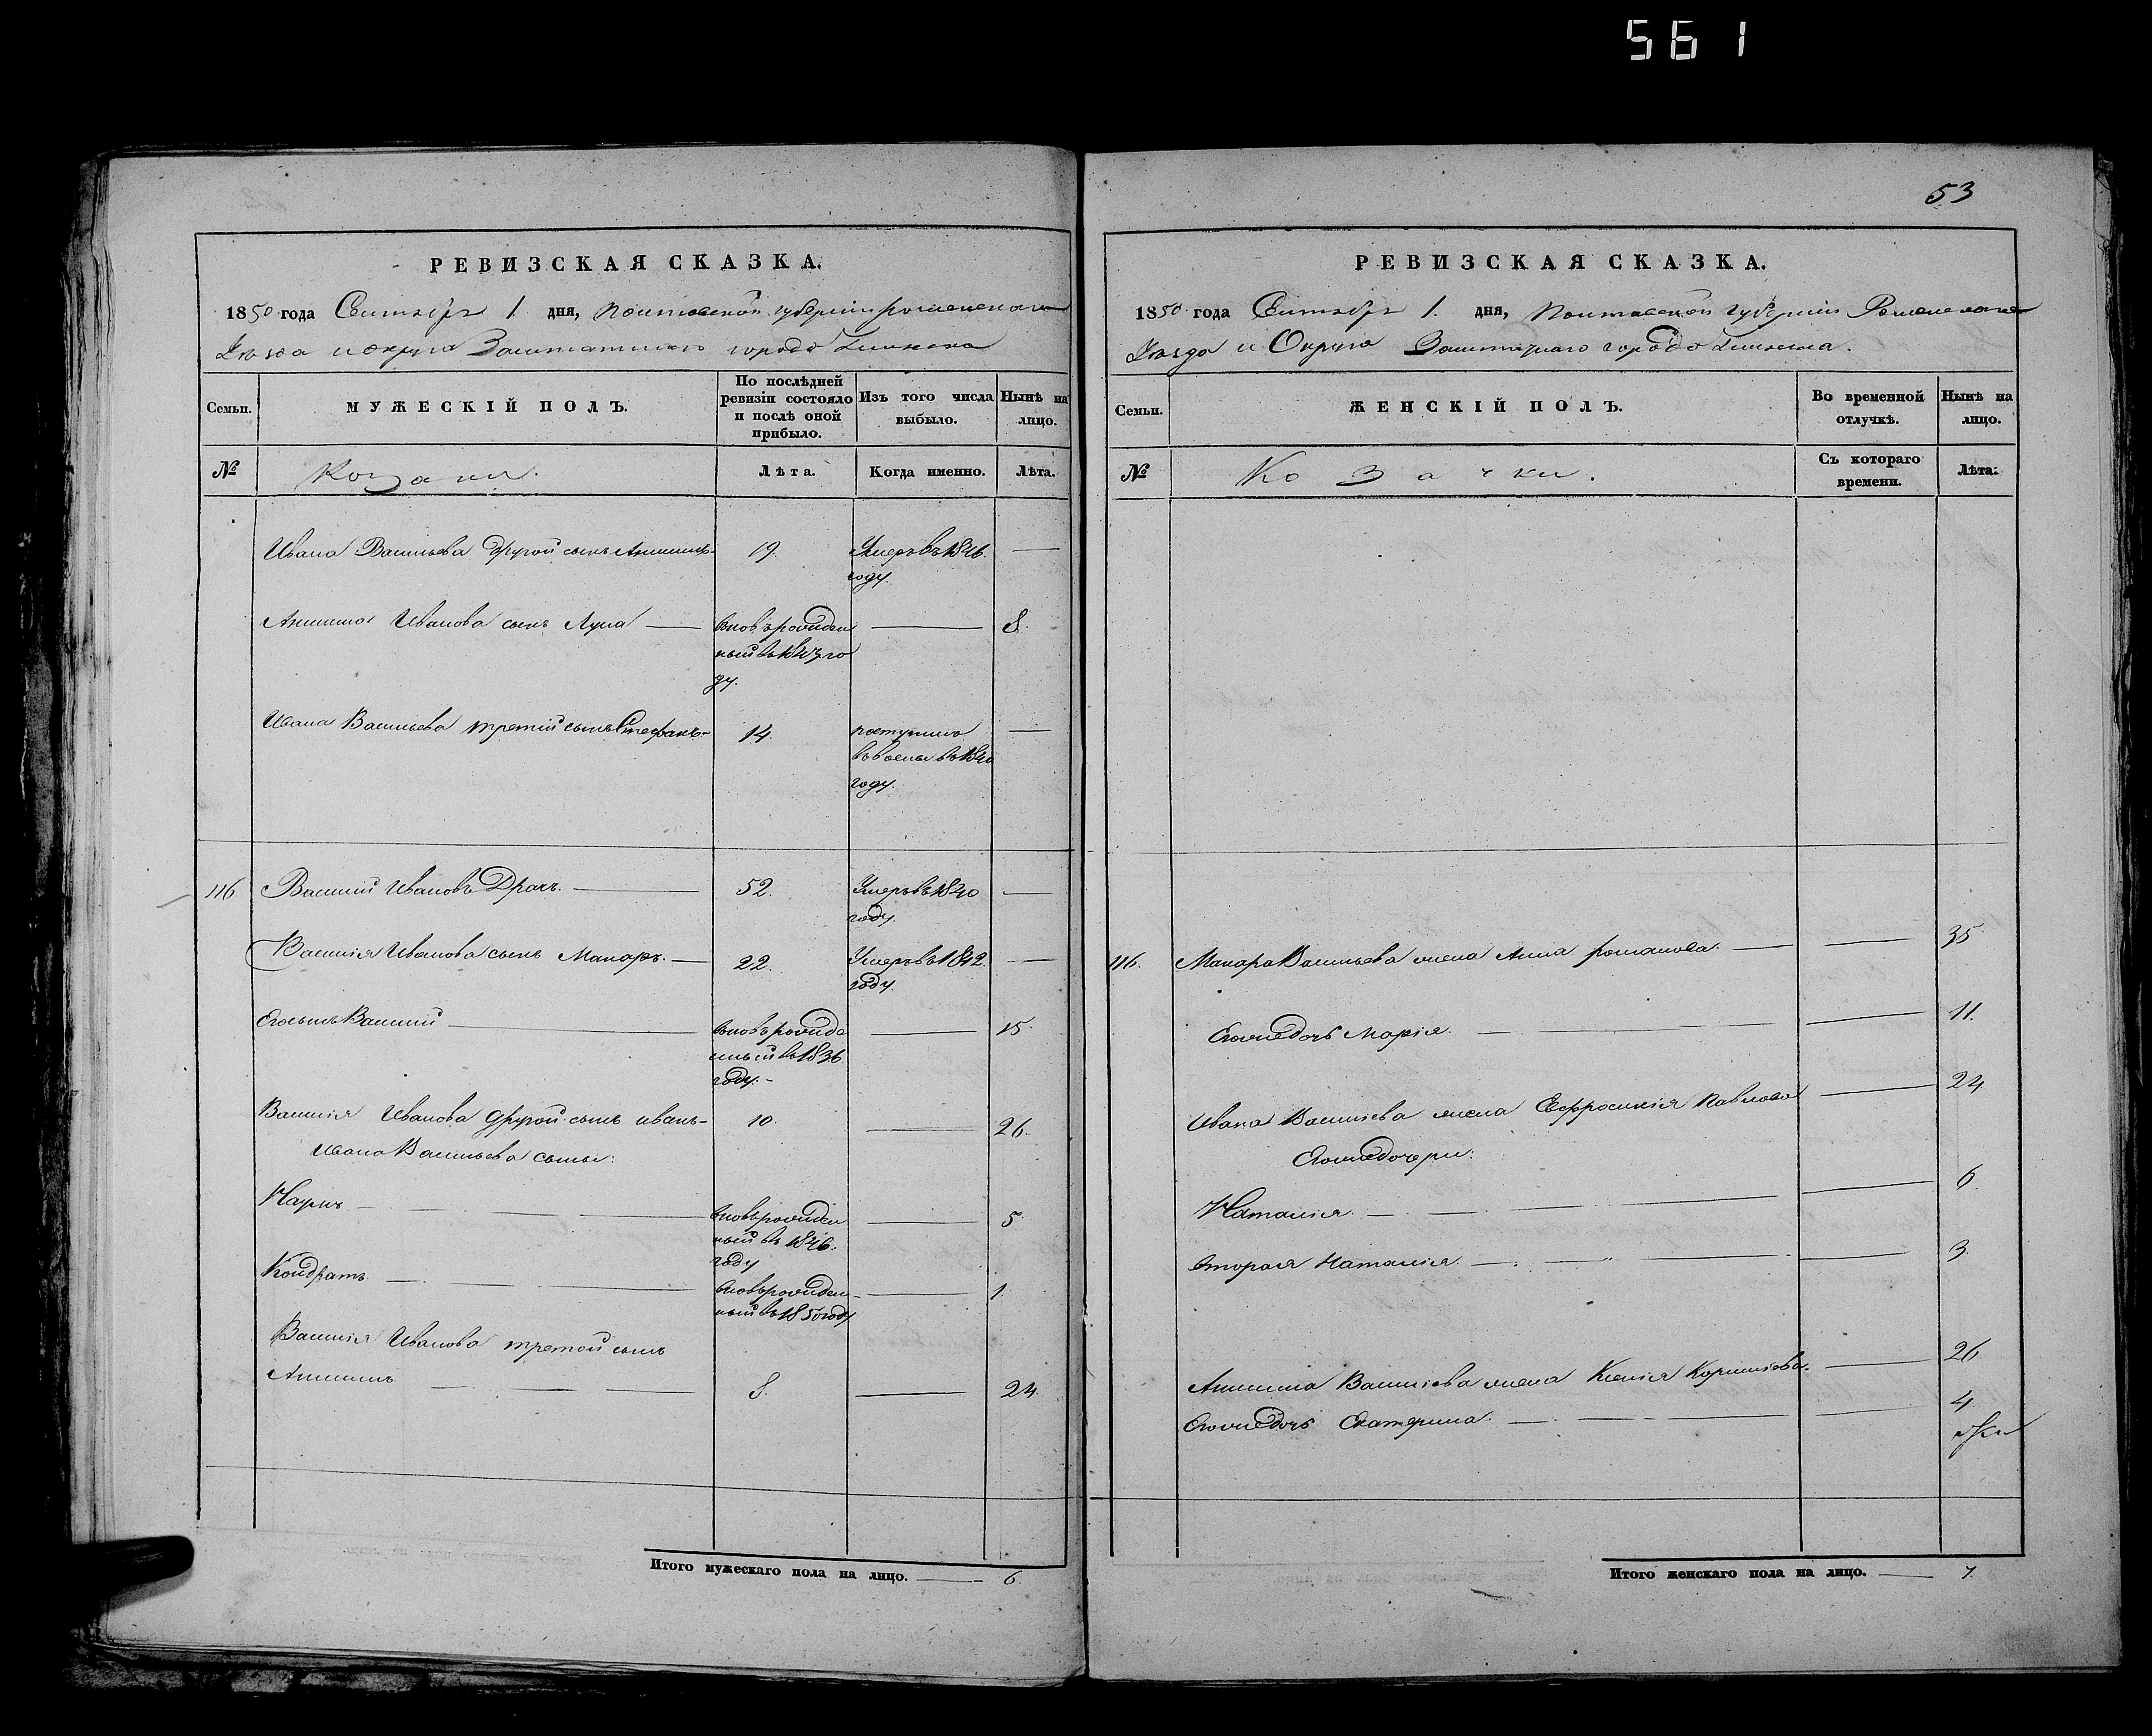 561
РЕВИЗСКАЯ СКАЗКА.
1850 года Сентября 1 дня, Полтавской губернии Роменского
Уезда и округа Заштатного города Глинска
Семьи.
МУЖЕСКІЙ ПОЛЪ.
По послѣдней ревизіи состояло и послѣ оной прибыло.
Изъ того числа выбыло.
Нынѣ на лицо.
№
Козаки.
Лѣта.
Когда именно.
Лѣта.
Ивана Васильева другой сынъ Анисимъ 19. Умеръ въ 1846 —
году.
Анисима Иванова сынъ Лука — вновь рожден — 8.
ный въ 1843 го
ду.
Ивана Васильева третій сынъ Стефанъ 14. поступилъ —
въ 1840
году.
116 Василий Ивановъ Драчъ. — 52. Умеръ въ 1840 —
году.
Василія Иванова сынъ Макаръ. — 22. Умеръ въ 1842. —
году.
Его сынъ Василий — вновь рожде — 15.
нный въ 1836
году. -
Василія Иванова другой сынъ иванъ- 10. — 26.
Ивана Васильева сыны:
Наумъ — вновь рожден — 5.
ный въ 1846.
году
Кондратъ — вновь рожден- — 1.
ный въ 1850 году
Василія Иванова третой сынъ
Анисимъ — 8. — 24.
Итого мужескаго пола на лицо. — 6.
53
РЕВИЗСКАЯ СКАЗКА.
1850 года Сентября 1. дня, Полтавской губерніи Роменского
Уезда и Округа Заштатнаго города Глинска.
Семьи.
ЖЕНСКІЙ ПОЛЪ.
Во временной отлучкѣ.
Нынѣ на лицо.
№
Козачки.
Съ котораго времени.
Лѣта:
116. Макара Васильева жена Анна романова. — — 35
Егожедочь Марія. — — 11.
Ивана Василіева жена Евфросинія Павлова — 24
Егожедочери:
Наталия. — — 6.
вторая Наталия. — — 3.
Анисима Василіева жена Ксенія Корниліева. — 26
Егожедочь Екатерина. — — 4.
Итого женскаго пола на лицо. — 7.